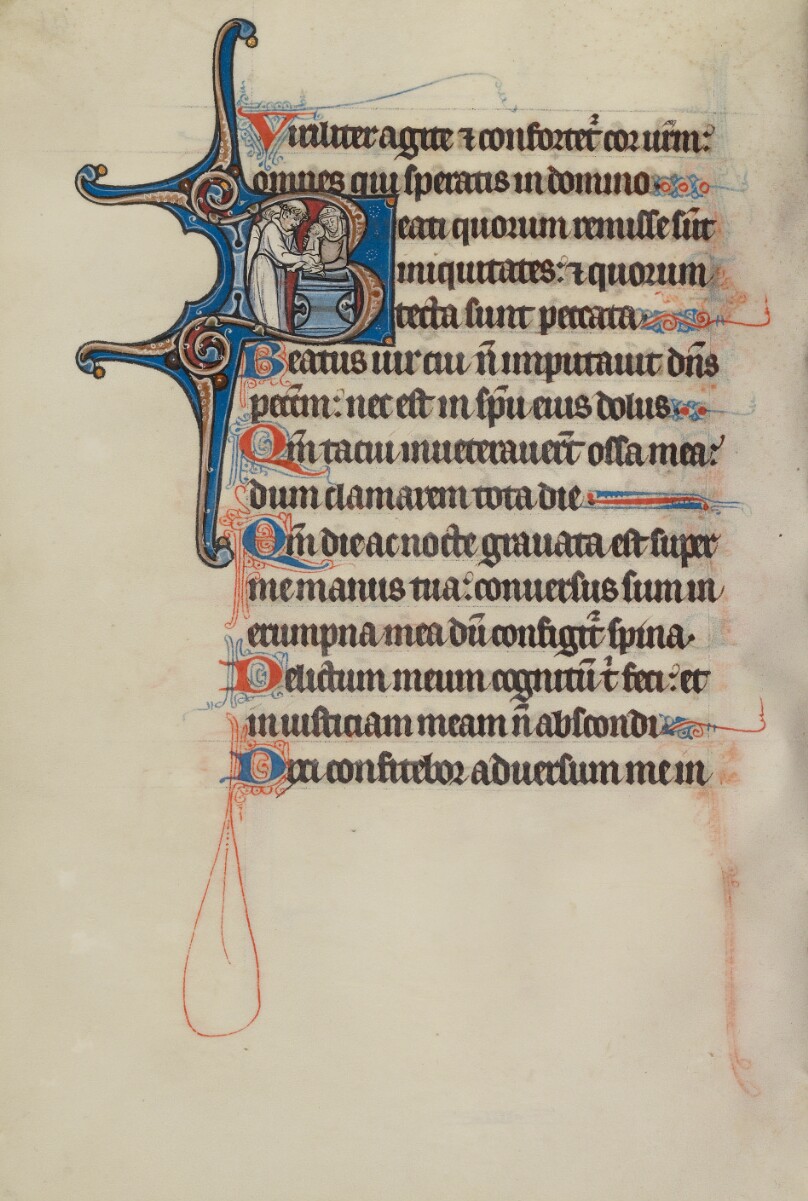 Viriliter agite ⁊ confortet᷑ cor ur̄m:
omnes qui speratis in domino.
Beati quorum remisse sūt
iniquitates: ⁊ quorum
tecta sunt peccata.
Beatus uir cui n̄ imputauit dn̄s
pecc̄m: nec est in sp̄u eius dolus.
Qm̄ tacui inueterauer̄t ossa mea:
dum clamarem tota die.
Qm̄ die ac nocte grauata est super
me manus tua: conuersus sum in
erumpna mea dū configit᷑ spina.
Delictum meum cognitū t̄ feci: et
iniusticiam meam n̄ abscondi.
Dixi confitebor aduersum me in